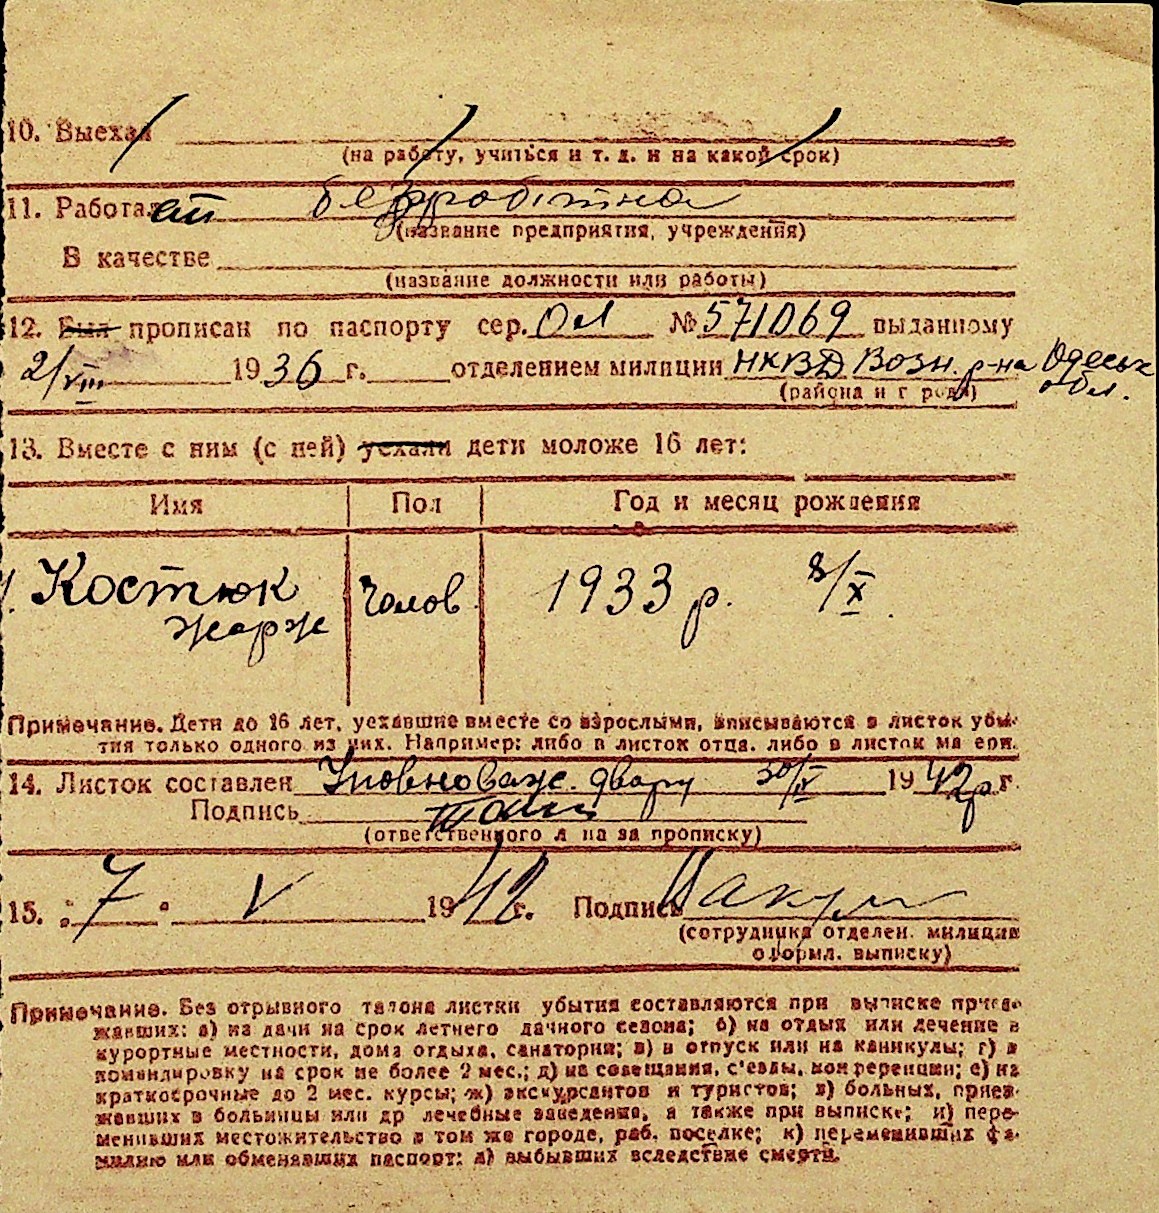 10. Выехал
(на работу, учиться и т. д. и на какой срок)
11. Работает безробітна
(название предприятия, учреждения)
В качестве
(название должности или работы)
12. Был прописан по паспорту сер. ОЛ № 571069 выданному
2/VIII 1936 г. отделением милиции НКВД Возн. р-на Одеськ обл.
(района и города)
13. Вместе с ним (с ней) уехали дети моложе 16 лет:
Имя Пол Год и месяц рождения
1. Костюк Чолов. 1933 р. 8/X.
Жорж
Примечание. Дети до 16 лет, уехавшие вместе со взрослыми, вписываются в листок убы-
тия только одного из них. Например: либо в листок отца, либо в листок матери.
14. Листок составлен Уповноваж. двору 30/IV 1942 р г.
Подпись
(ответственного л на за прописку)
15. " 7 " V 1942 г. Подпись
(сотрудника отделен. милиции
оформл. выписку)
Примечание. Без отрывного талона листки убытия составляются при выписке приез-
жавших: а) на дачи на срок летнего дачного сезона; б) на отдых или лечение в
курортные местности, дома отдыха, санатории; в) в отпуск или на каникулы; г) в
командировку на срок не более 2 мес.; д) на совещания, с'езды, конференции; е) на
краткосрочные до 2 мес. курсы; ж) экскурсантов и туристов; з) больных, приез-
жавших в больницы или др лечебные заведения, а также при выписке; и) пере-
менивших местожительство в том же городе, раб. поселке; к) переменивших фа-
милию или обменявших паспорт; л) выбывших вследствие смерти.